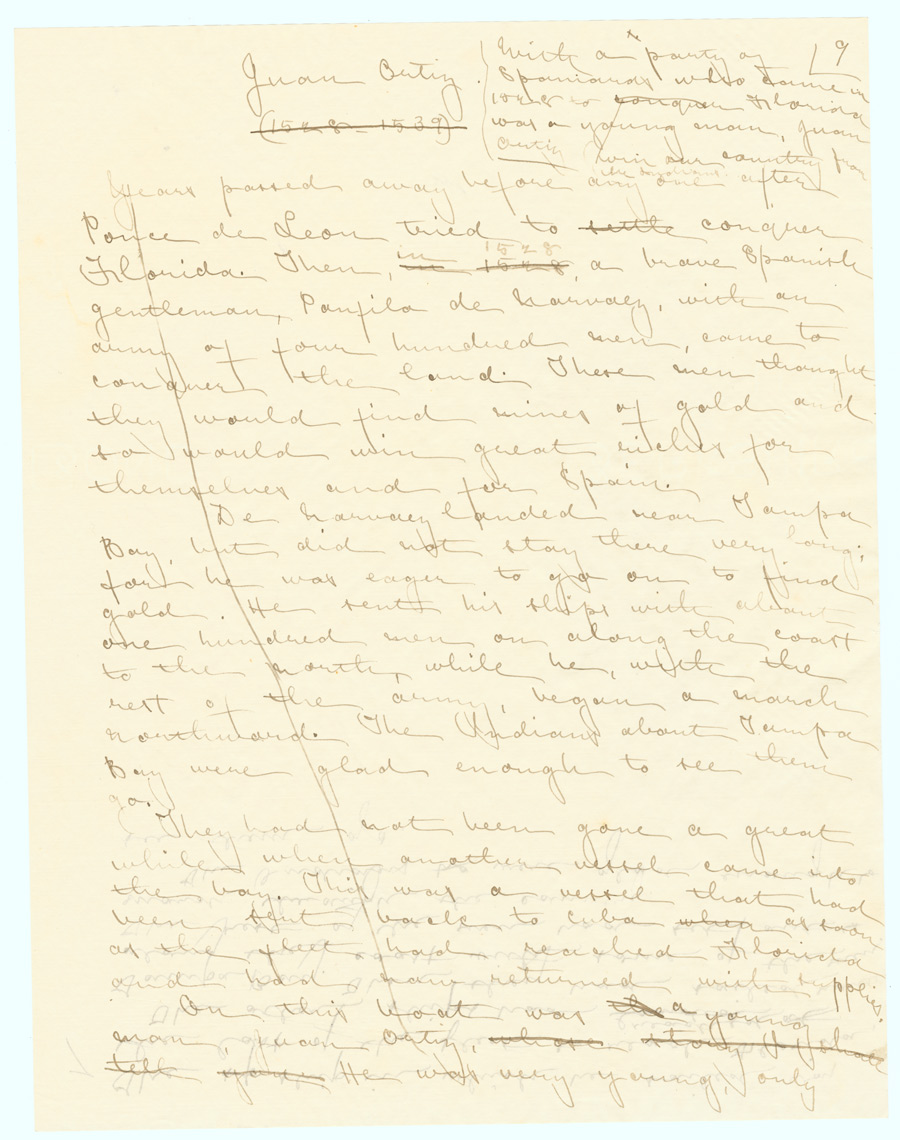 19
Juan Ortiz.
(1528-1539)
With a party of
Spaniards who came in
1528 to conquer Florida
was a young man, Juan
Ortiz
win our country from
the Indians
Years passed away before any one after
Ponce de Leon tried to settle conquer
Florida. Then, in 1528 in 1528, a brave Spanish
gentleman, Panfilo de Narvaez, with an
army of four hundred men, came to
conquer the land. These men thought
they would find mines of gold and
so would win great riches for
themselves and for Spain.
De Narvaez landed near Tampa
Bay, but did not stay there very long;
for he was eager to go on to find
gold. He sent his ships with about
one hundred men on along the coast
to the north, while he, with the
rest of the army, began a march
northward. The Indians about Tampa
Bay were glad enough to see them
go.
They had not been gone a great
while when another vessel came into
the bay. This was a vessel that had
been sent back to Cuba when as soon
as the fleet had reached Florida
and had now returned with supplies.
On this boat was the a young
man, Juan Ortiz, whose story I shall
tell you. He was very young, only